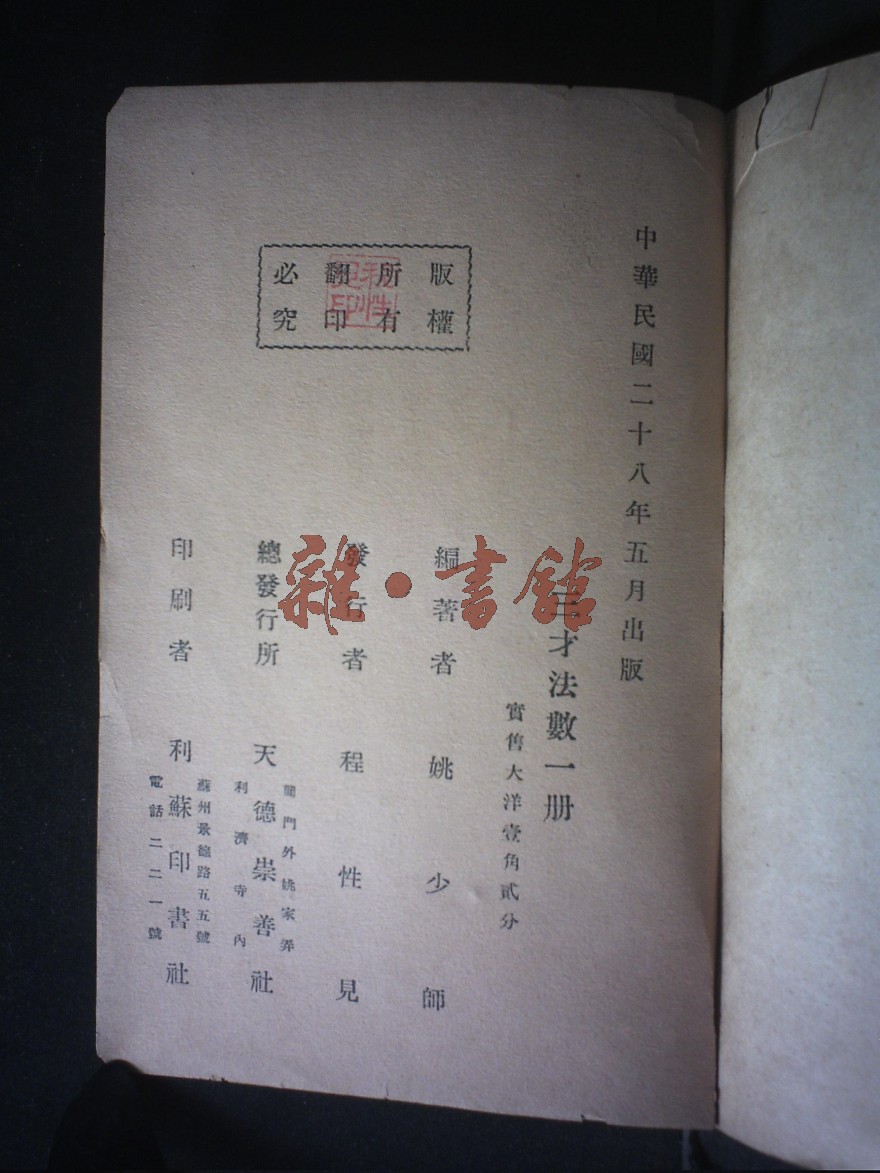 中華民國二十八年五月出版
三才法數一册
實售大洋壹角貳分
編著者 姚少師
發行者 程性見
總發行所 天德崇善社
閶門外姚家弄
利濟寺內
印刷者 利蘇印書社
蘇州景德路五五號
電話二二一號
版權
所有
翻印
必究
程性
見印
雜·書館